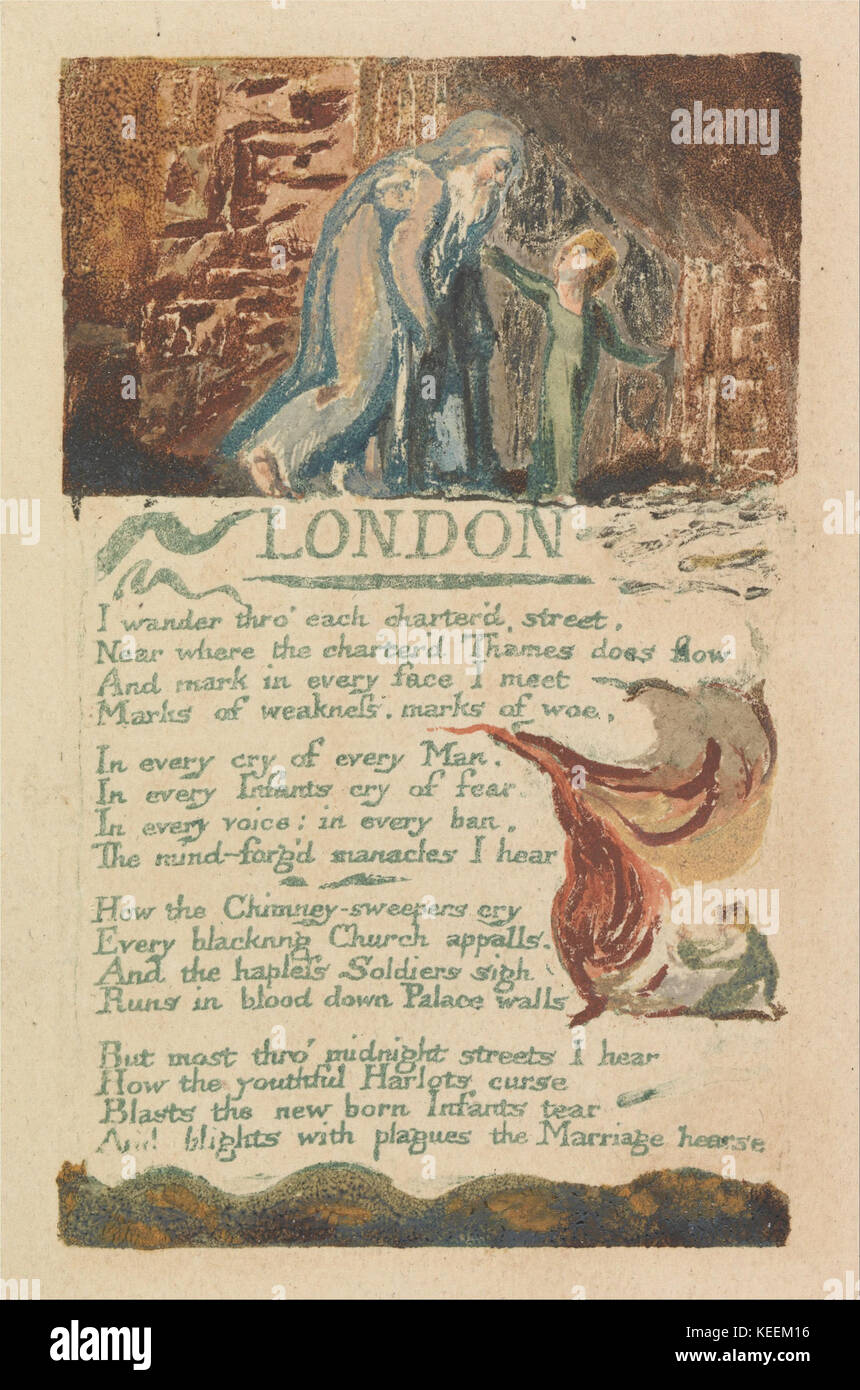 LONDON
I wander thro' each charter'd street,
Near where the charter'd Thames does flow
And mark in every face I meet
Marks of weakneſs, marks of woe.
In every cry of every Man,
In every Infants cry of fear
In every voice; in every ban,
The mind-forg'd manacles I hear
How the Chimney-sweepers cry
Every blackning Church appalls,
And the hapleſs Soldiers sigh
Runs in blood down Palace walls
But most thro' midnight streets I hear
How the youthful Harlots curse
Blasts the new born Infants tear
And blights with plagues the Marriage hearse
alamy
Image ID: KEEM16
www.alamy.com